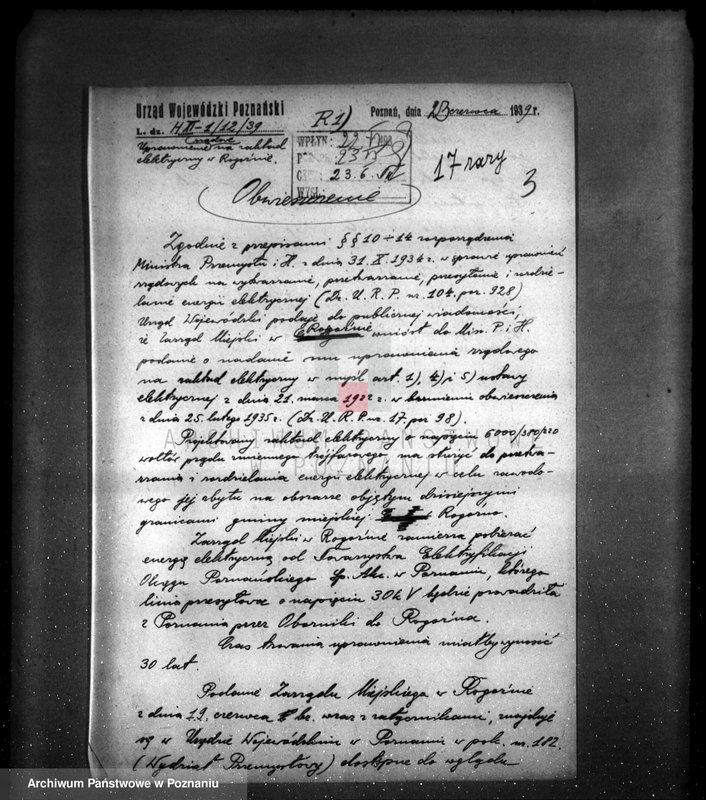 Urząd Wojewódzki Poznański
Poznań, dnia 23 czerwca 1939 r.
L. dz. H.XI-1/12/39
R1)
rządowe
Uprawnienie na zakład
elektryczny w Rogoźnie.
WPŁYN:
23.6.
WYSŁ:
17 razy
3
Obwieszczenie
Zgodnie z przepisami §§ 10 ÷ 14 rozporządzenia
Ministra Przemysłu i H. z dnia 31.X.1934 r. w sprawie uprawnień
rządowych na wytwarzanie, przetwarzanie, przesyłanie i rozdzie-
lanie energii elektrycznej (Dz. U. R. P. nr. 104. poz. 928)
Urząd Wojewódzki podaje do publicznej wiadomości,
że Zarząd Miejski w Rogoźnie wniósł do Min. P. i H.
podanie o nadanie mu uprawnienia rządowego
na zakład elektryczny w myśl art. 1), 4) i 5) ustawy
elektrycznej z dnia 21. marca 1922 r. w brzmieniu obwieszczenia
z dnia 25. lutego 1935 r. (Dz. U. R. P. nr. 17. poz 98).
Projektowany zakład elektryczny o napięciu 6000/380/220
woltów prądu zmiennego trójfazowego, ma służyć do przetwa-
rzania i rozdzielania energii elektrycznej w celu zawodo-
wego jej zbytu na obszarze objętym dzisiejszymi
granicami gminy miejskiej Rogoźno.
Zarząd Miejski w Rogoźnie zamierza pobierać
energię elektryczną od Towarzystwa Elektryfikacji
Okręgu Poznańskiego Sp. Akc. w Poznaniu, którego
linia przesyłowa o napięciu 30 kV będzie prowadziła
z Poznania przez Oborniki do Rogoźna.
Czas trwania uprawnienia miałby wynosić
30 lat.
Podanie Zarządu Miejskiego w Rogoźnie
z dnia 19. czerwca br. wraz z załącznikami, znajduje
się w Urzędzie Wojewódzkim w Poznaniu w pok. nr. 102.
(Wydział Przemysłowy) dostępne do wglądu
ARCHIWUM PAŃSTWOWE
W POZNANIU
Archiwum Państwowe w Poznaniu